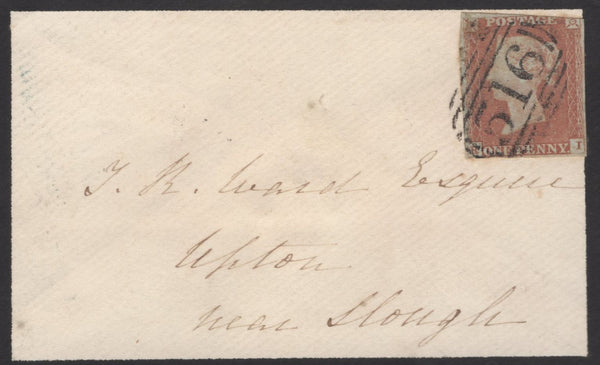 POSTAGE
516
ONE PENNY
I
J. R. Ward Esquire
Upton
near Slough